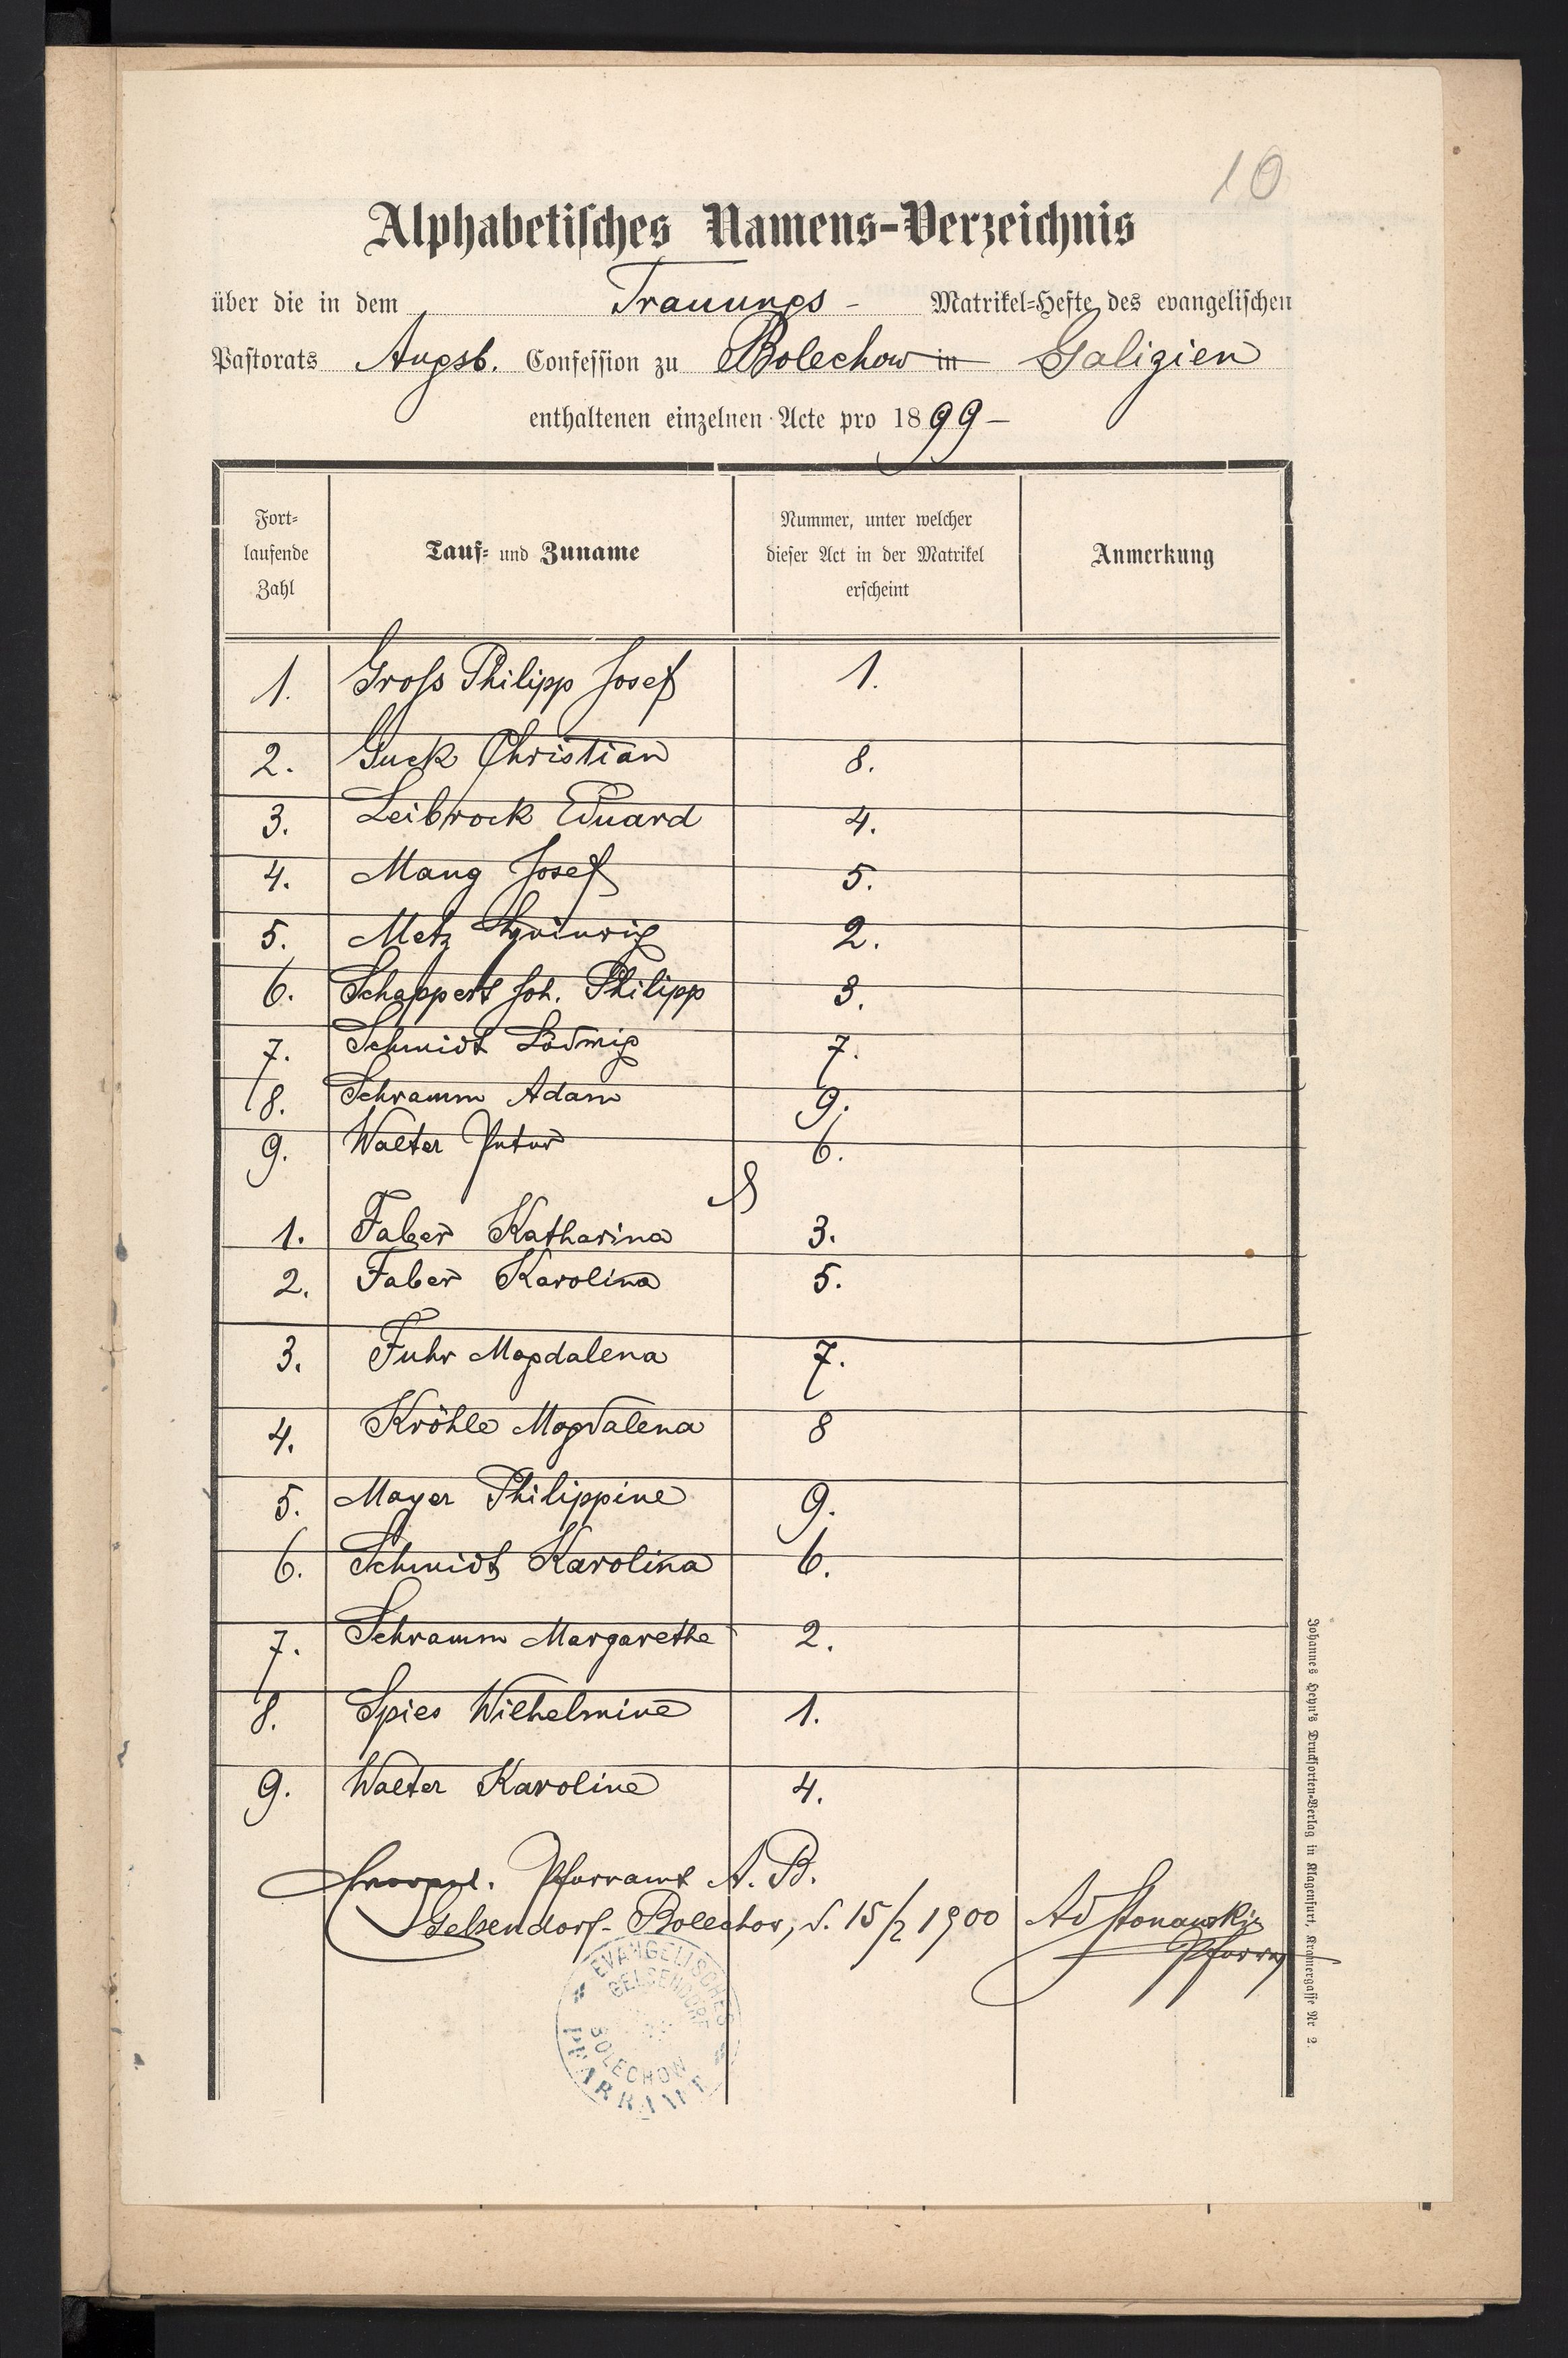 10
Alphabetisches Namens-Verzeichnis
über die in dem Trauungs - Matrikel-Hefte des evangelischen
Pastorats Augsb. Confession zu Bolechow in Galizien
enthaltenen einzelnen Acte pro 1899 -
Fort-
laufende
Zahl
Tauf- und Zuname
Nummer, unter welcher
dieser Act in der Matrikel
erscheint
Anmerkung
1. Gross Philipp Josef 1.
2. Guck Christian 8.
3. Leibrock Eduard 4.
4. Mang Josef 5.
5. Metz Heinrich 2.
6. Schappert Joh. Philipp 3.
7. Schmidt Ludwig 7.
8. Schramm Adam 9.
9. Walter Peter 6.
1. Faber Katharina 3.
2. Faber Karolina 5.
3. Fuhr Magdalena 7.
4. Kröhle Magdalena 8
5. Mayer Philippine 9.
6. Schmidt Karolina 6.
7. Schramm Margarethe 2.
8. Spies Wilhelmine 1.
9. Walter Karoline 4.
Pfarramt A. B.
Gelsendorf-Bolechow, d. 15/2 1900 Ad Stonawski
Pfarrer
EVANGELISCHES
GELSENDORF
BOLECHOW
PFARRAMT
Johannes Heyn's Drucksorten-Verlag in Klagenfurt, Kramergasse Nr 2.